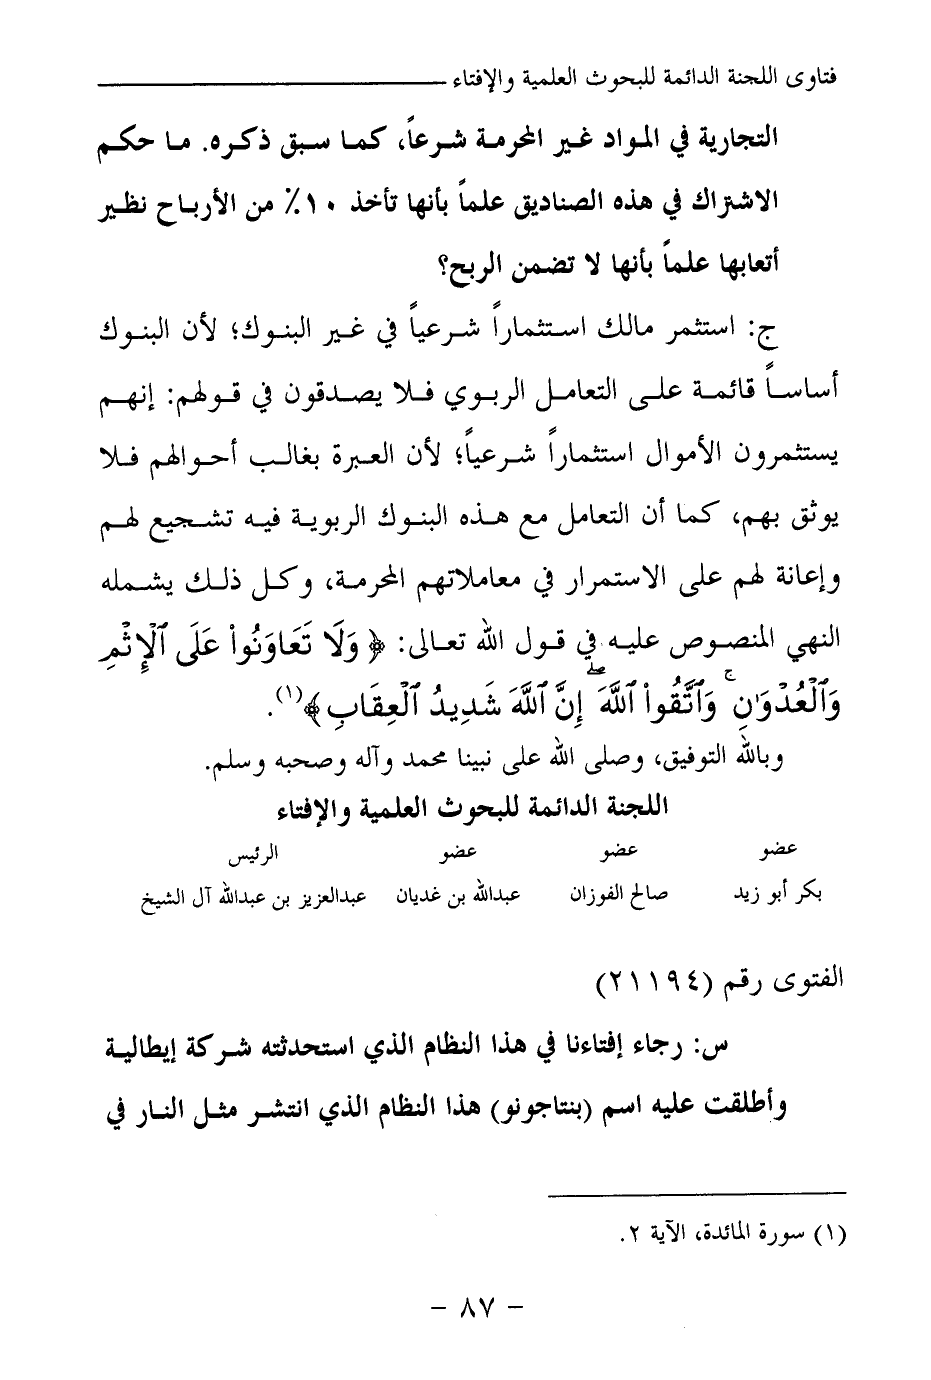 فتاوى اللجنة الدائمة للبحوث العلمية والإفتاء
التجارية في المواد غير المحرمة شرعاً، كما سبق ذكره. ما حكم
الاشتراك في هذه الصناديق علماً بأنها تأخذ ١٠٪ من الأرباح نظير
أتعابها علماً بأنها لا تضمن الربح؟
ج: استثمر مالك استثماراً شرعياً في غير البنوك؛ لأن البنوك
أساساً قائمة على التعامل الربوي فلا يصدقون في قولهم: إنهم
يستثمرون الأموال استثماراً شرعياً؛ لأن العبرة بغالب أحوالهم فلا
يوثق بهم، كما أن التعامل مع هذه البنوك الربوية فيه تشجيع لهم
وإعانة لهم على الاستمرار في معاملاتهم المحرمة، وكل ذلك يشمله
النهي المنصوص عليه في قول الله تعالى: ﴿ وَلَا تَعَاوَنُوا۟ عَلَى ٱلْإِثْمِ
وَٱلْعُدْوَٰنِ ۚ وَٱتَّقُوا۟ ٱللَّهَ ۖ إِنَّ ٱللَّهَ شَدِيدُ ٱلْعِقَابِ ﴾(١).
وبالله التوفيق، وصلى الله على نبينا محمد وآله وصحبه وسلم.
اللجنة الدائمة للبحوث العلمية والإفتاء
عضو عضو عضو الرئيس
بكر أبو زيد صالح الفوزان عبدالله بن غديان عبدالعزيز بن عبدالله آل الشيخ
الفتوى رقم (٢١١٩٤)
س: رجاء إفتاءنا في هذا النظام الذي استحدثته شركة إيطالية
وأطلقت عليه اسم (بنتاجونو) هذا النظام الذي انتشر مثل النار في
(١) سورة المائدة، الآية ٢.
- ٨٧ -